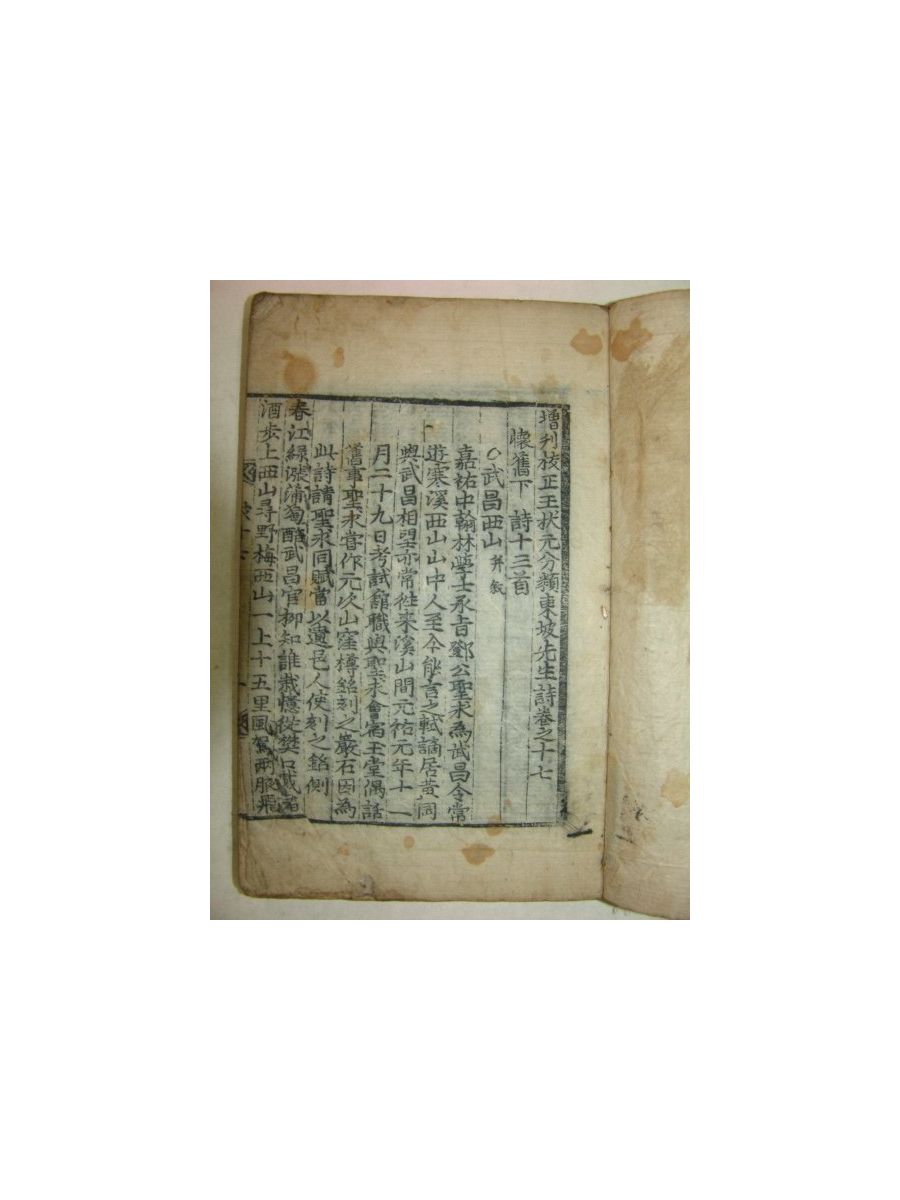 增刋校正王狀元分類東坡先生詩卷之十七
懷舊下 詩十三首
○武昌西山 并叙
嘉祐中翰林學士承旨鄧公聖求爲武昌令常
遊寒溪西山山中人至今能言之軾謫居黃岡
與武昌相望亦常徃來溪山間元祐元年十一
月二十九日考試舘職與聖求會宿玉堂偶話
舊事聖求嘗作元次山窪樽銘刻之巖石因爲
此詩請聖求同賦當以遺邑人使刻之銘側
春江綠漲蒲萄醅武昌官柳知誰栽憶從樊口載諸
酒步上西山尋野梅西山一上十五里風駕兩腋飛